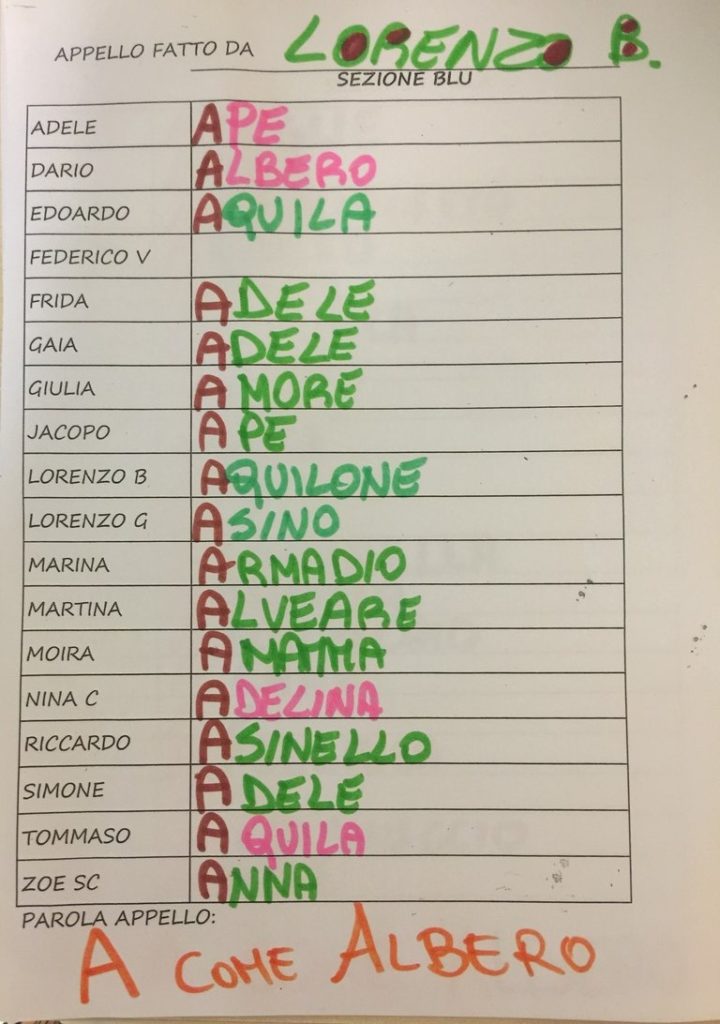 APPELLO FATTO DA LORENZO B.
SEZIONE BLU
ADELE APE
DARIO ALBERO
EDOARDO AQUILA
FEDERICO V
FRIDA ADELE
GAIA ADELE
GIULIA AMORE
JACOPO APE
LORENZO B AQUILONE
LORENZO G ASINO
MARINA ARMADIO
MARTINA ALVEARE
MOIRA
NINA C ADELINA
RICCARDO ASINELLO
SIMONE ADELE
TOMMASO AQUILA
ZOE SC ANNA
PAROLA APPELLO:
A COME ALBERO